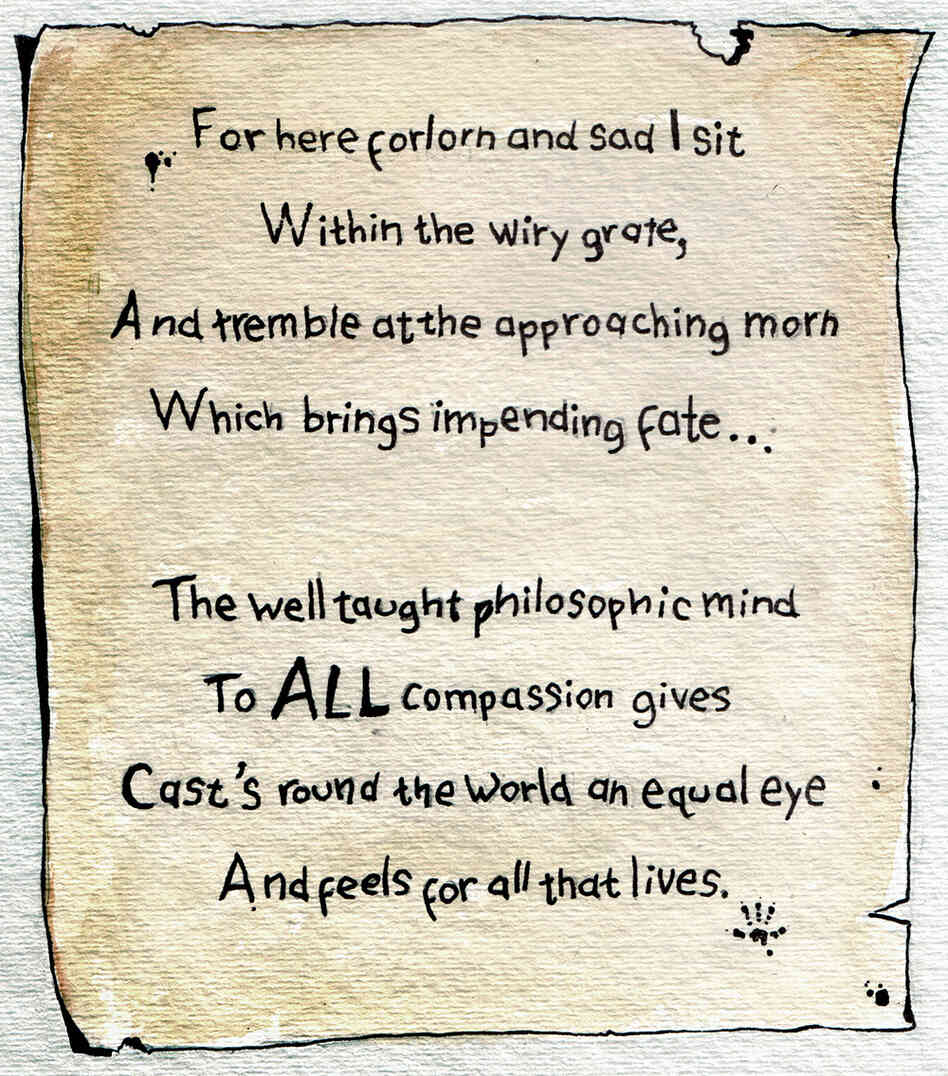 For here forlorn and sad I sit
Within the wiry grate,
And tremble at the approaching morn
Which brings impending fate...
The well taught philosophic mind
To ALL compassion gives
Cast's round the world an equal eye
And feels for all that lives.